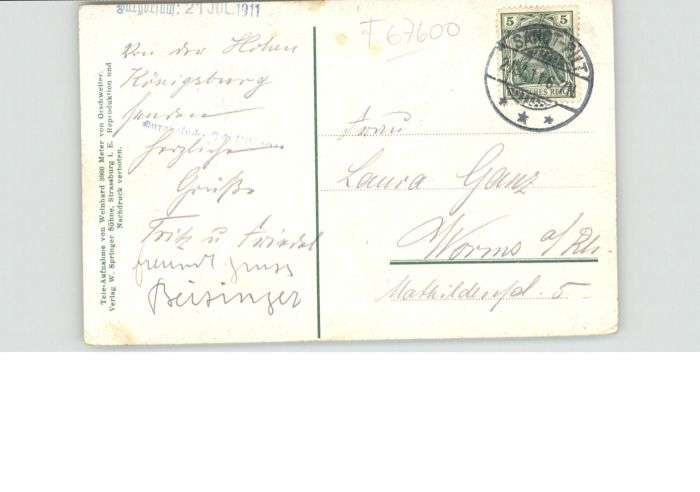 21 JUL. 1911
T 67600
Von der Hohen
Königsburg
senden
herzliche
Grüße
Fritz u Friedel
freundl. Gruss
Beisinger
5 5
DEUTSCHES REICH
Frau
Laura Ganz
Worms a/Rh.
Mathildenpl. 5
Tele-Aufnahme von Weinhard 3960 Meter von Orschweiler.
Verlag W. Springer Söhne, Strassburg i. E. Reproduktion und
Nachdruck verboten.